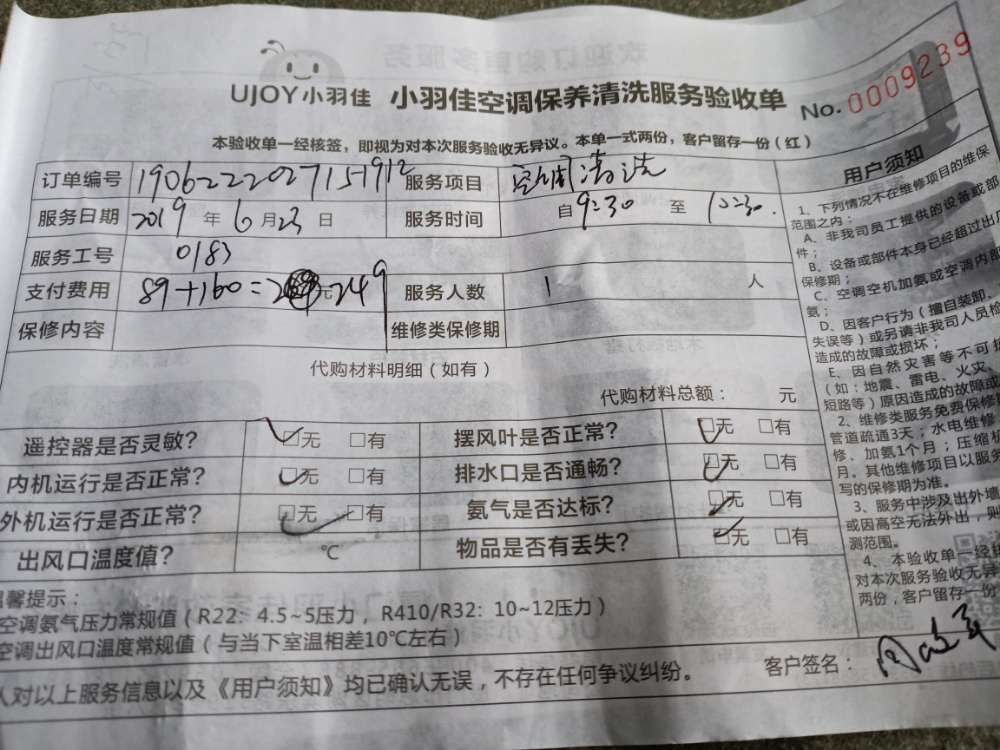 UJOY小羽佳 小羽佳空调保养清洗服务验收单 No.0009239
本验收单一经核签，即视为对本次服务验收无异议。本单一式两份，客户留存一份（红）
订单编号 190622202715-1912 服务项目 空调清洗
服务日期 2019年6月23日 服务时间 自9:30至10:30.
服务工号 0183
支付费用 89+160= 249 元 服务人数 1 人
保修内容 维修类保修期
代购材料明细（如有）
代购材料总额： 元
遥控器是否灵敏? □无 □有 摆风叶是否正常? □无 □有
内机运行是否正常? □无 □有 排水口是否通畅? □无 □有
外机运行是否正常? □无 □有 氨气是否达标? □无 □有
出风口温度值? ℃ 物品是否有丢失? □无 □有
馨提示：
空调氨气压力常规值（R22：4.5~5压力，R410/R32：10~12压力）
空调出风口温度常规值（与当下室温相差10℃左右）
人对以上服务信息以及《用户须知》均已确认无误，不存在任何争议纠纷。 客户签名：
用户须知
1、下列情况不在维修项目的维保
范围之内：
A、非我司员工提供的设备或部
件；
B、设备或部件本身已经超过出
保修期；
C、空调空机加氨或空调内部
氨；
D、因客户行为（擅自装卸、
失误等）或另请非我司人员检
造成的故障或损坏；
E、因自然灾害等不可抗
（如：地震、雷电、火灾、
短路等）原因造成的故障或
2、维修类服务免费保修
管道疏通3天；水电维修
修、加氨1个月；压缩机
月。其他维修项目以服务
写的保修期为准。
3、服务中涉及出外墙
或因高空无法外出，则
测范围。
4、本验收单一经
对本次服务验收无异
两份，客户留存一份